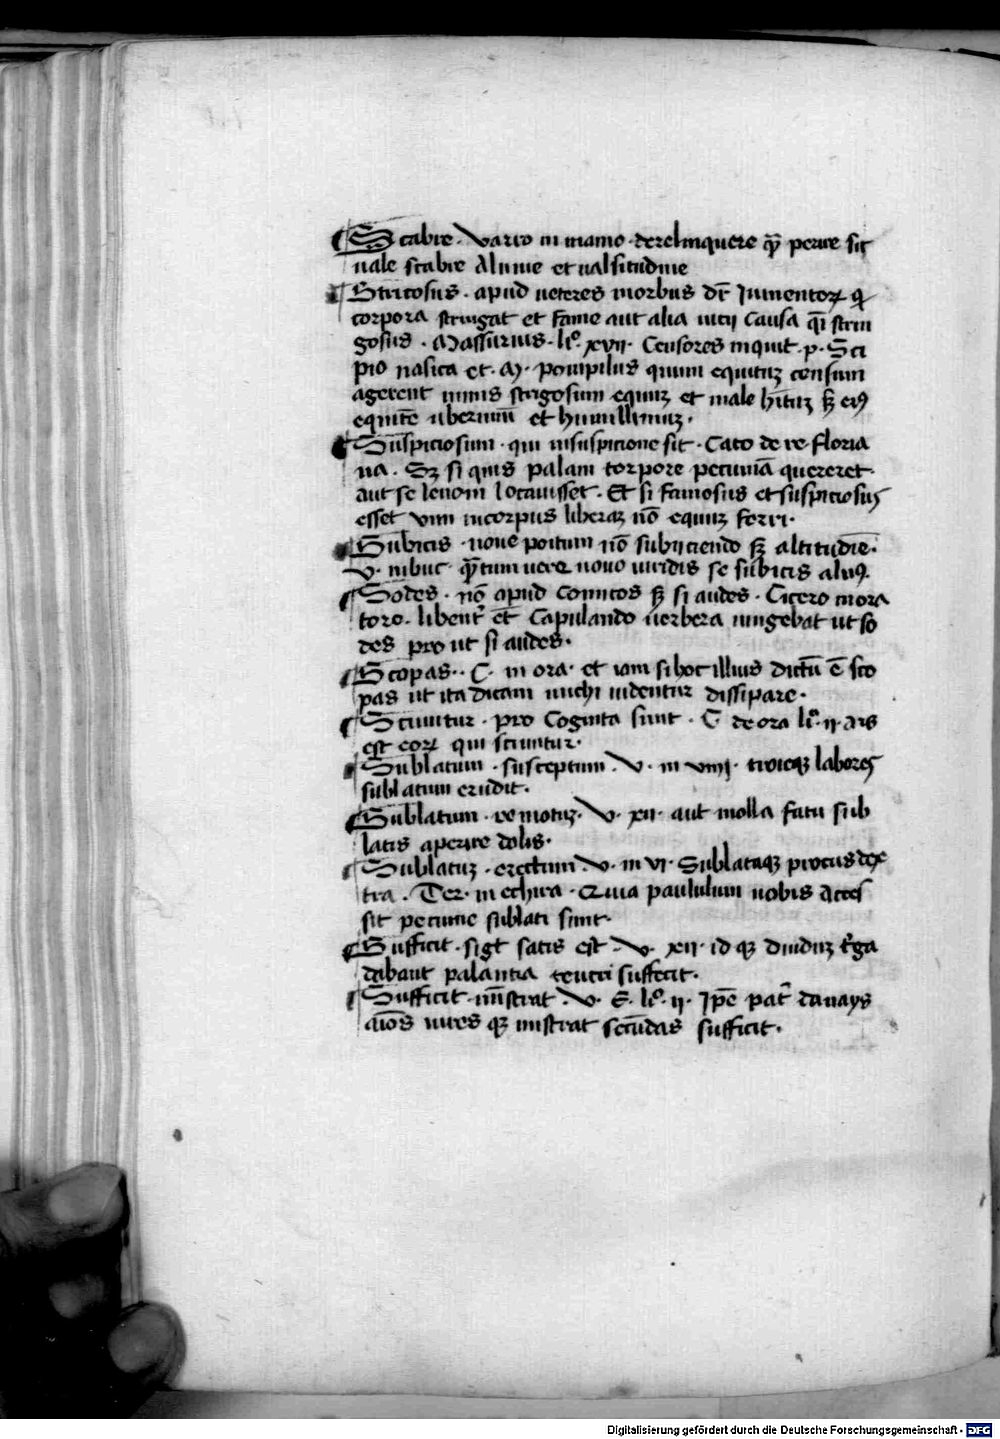 Scabre · Varro in mamo · derelinquere q̄ꝫ perire sit
uale scabre Alnme et ualsitudine
Stricosus · apud ueteres morbus dr̄ Jumentoꝝ q̄
corpora stringat et fame aut alia uicii causa q̄i strin
gosus · Massurius · li° · xvii · Censores inquit · p · Sci
pio nasica et · M · pompilius quum equituꝫ censum
agerent nimis strigosum equuꝫ et male hītuꝫ sꝫ eiꝰ
equitē uberimū et humillimuꝫ ·
Suspiciosum · qui insuspicione sit · Cato de re floria
na · Sꝫ si quis palam corpore pecuniā quereret ·
aut se lenoni locauisset · Et si famosus et suspiciosus
esset vim incorpus liberaꝫ nō equuꝫ ferri ·
Subicis · noue positum nō subijciendo sꝫ altitudīe ·
V · in buc · q̄ꝫtum uere nouo uiridis se subicis alnꝰ
Sodes · nō apud comicos sꝫ si audes · Cicero in ora
tore · libent̄ et̄ Capulando uerbera iungebat ut so
des pro ut si audes ·
Scopas · · C · in ora · et iam si hoc illius dictū ē sco
pas ut ita dicam michi uidentur dissipare ·
Sciuntur · pro Cognita sunt · C de ora li° · ii · ars
est eoꝝ qui sciuntur ·
Sublatum · susceptum · V · in viiii · troicꝫ labores
sublatum erudit ·
Sublatum · remotuꝫ · V · xii · aut molla fatu sub
latis aperire dolis ·
Sublatuꝫ · erectum · V · in vi · Sublataqꝫ procus dex
tra · Ter · in echira · Quia paululum uobis acces
sit pecunie sublati sunt ·
Sufficit · sigt̄ satis est · V · xii · id qꝫ diuiduꝫ t̄ga
dabant palantia teucri suffecit ·
Sufficit · mīstrat · V · E · li° · ii · Jpē pat̄ danays
aīos uires qꝫ mistrat secūdas sufficit ·
Digitalisierung gefördert durch die Deutsche Forschungsgemeinschaft - DFG